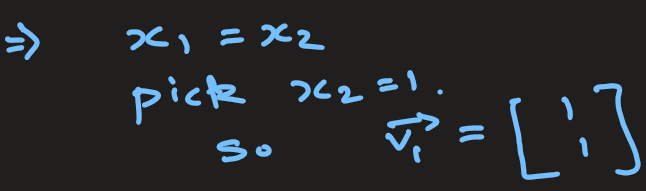 ⇒ x₁ = x₂
pick x₂ = 1.
so v⃗₁ = [1 1]